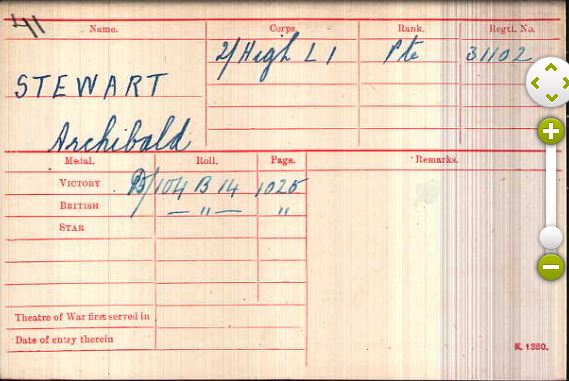 Name. Corps. Rank. Regtl. No.
2/High L I Pte 31102
STEWART
Archibald
Medal. Roll. Page. Remarks.
VICTORY 104 B 14 1025
BRITISH — " — "
STAR
Theatre of War first served in
Date of entry therein
K. 1380.